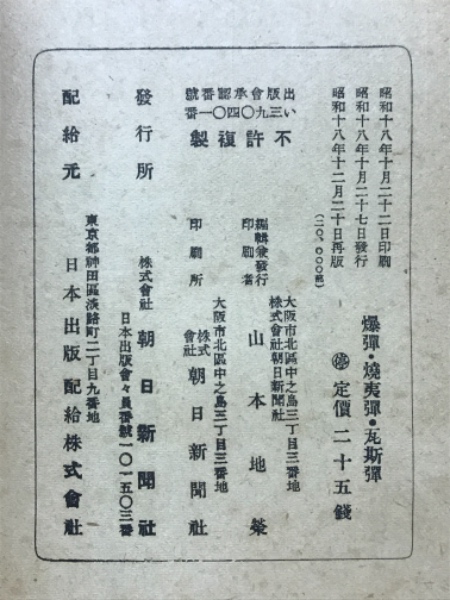 爆彈・燒夷彈・瓦斯彈
㊡定價二十五錢
昭和十八年十月二十二日印刷
昭和十八年十月二十七日發行
昭和十八年十二月二十日再版
(二〇、〇〇〇部)
大阪市北區中之島三丁目三番地
株式會社朝日新聞社
編輯兼發行
印刷者
山本地榮
大阪市北區中之島三丁目三番地
印刷所
株式會社
朝日新聞社
不許複製
出版會承認番號
い三九〇四〇一番
發行所
株式會社
朝日新聞社
日本出版會々員番號一〇一五〇三番
配給元
東京都神田區淡路町二丁目九番地
日本出版配給株式會社